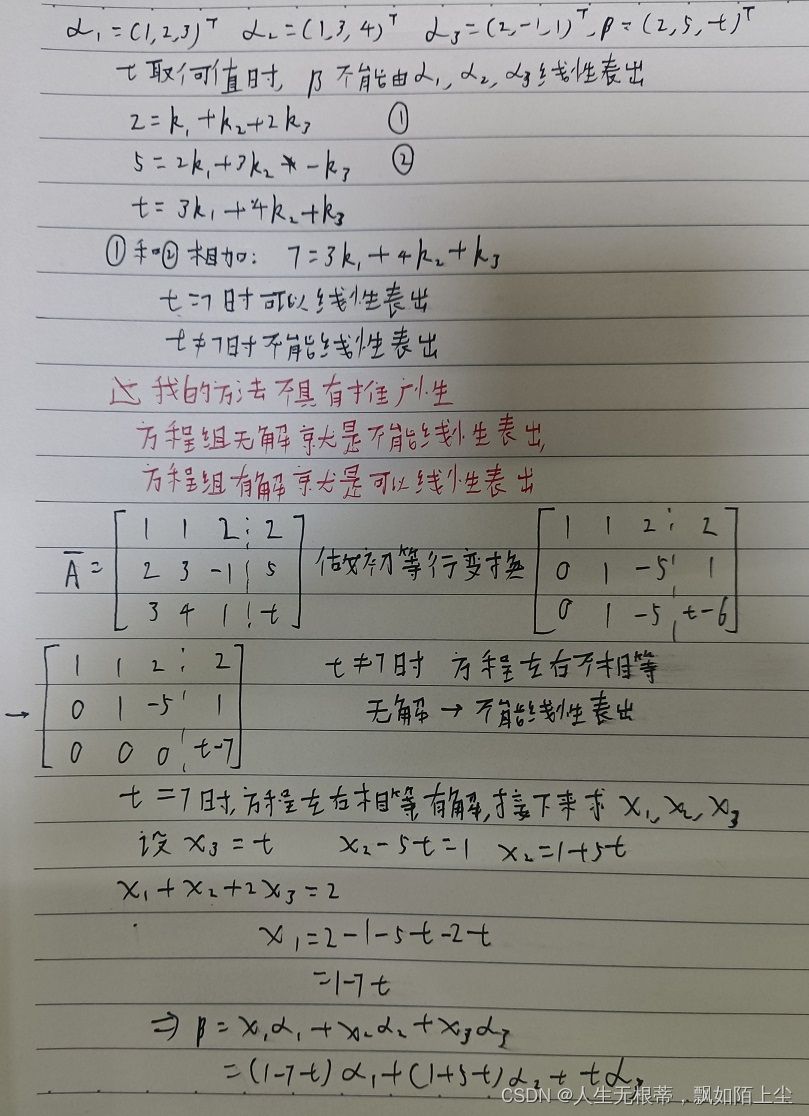 α₁=(1,2,3)ᵀ α₂=(1,3,4)ᵀ α₃=(2,-1,1)ᵀ, β=(2,5,t)ᵀ
t取何值时, β不能由α₁, α₂, α₃线性表出
2=k₁+k₂+2k₃ ①
5=2k₁+3k₂-k₃ ②
t=3k₁+4k₂+k₃
①和②相加: 7=3k₁+4k₂+k₃
t=7时可以线性表出
t≠7时不能线性表出
我的方法不具有推广性
方程组无解就是不能线性表出,
方程组有解就是可以线性表出
Ā= [1 1 2 ⋮ 2] 做初等行变换 [1 1 2 ⋮ 2]
[2 3 -1 ⋮ 5] [0 1 -5 ⋮ 1]
[3 4 1 ⋮ t] [0 1 -5 ⋮ t-6]
[1 1 2 ⋮ 2] t≠7时 方程左右不相等
→ [0 1 -5 ⋮ 1] 无解→不能线性表出
[0 0 0 ⋮ t-7]
t=7时,方程左右相等,有解,接下来求 x₁, x₂, x₃
设 x₃=t x₂-5t=1 x₂=1+5t
x₁+x₂+2x₃=2
x₁=2-1-5t-2t
=1-7t
⇒ β=x₁α₁+x₂α₂+x₃α₃
=(1-7t)α₁+(1+5t)α₂+tα₃
CSDN @人生无根蒂，飘如陌上尘